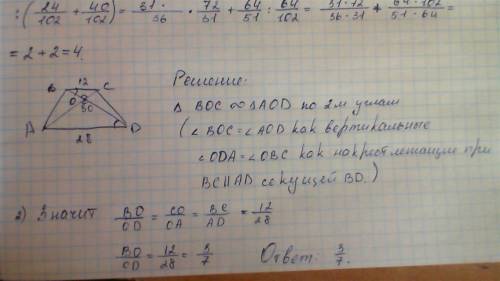 : (24/102 + 40/102) = 31 · /36 · 72/31 + 64/51 : 64/102 = 31·12/36·31 + 64·102/51·64 =
= 2 + 2 = 4.
Решение:
B 12 C
O
A D
28
Δ BOC ∞ ΔAOD по 2м углам
(∠BOC = ∠AOD как вертикальные
∠ODA = ∠OBC как накрест лежащие при
BC||AD секущей BD.)
2) Значит BO/OD = CO/OA = BC/AD = 12/28
BO/OD = 12/28 = 3/7 Ответ: 3/7.